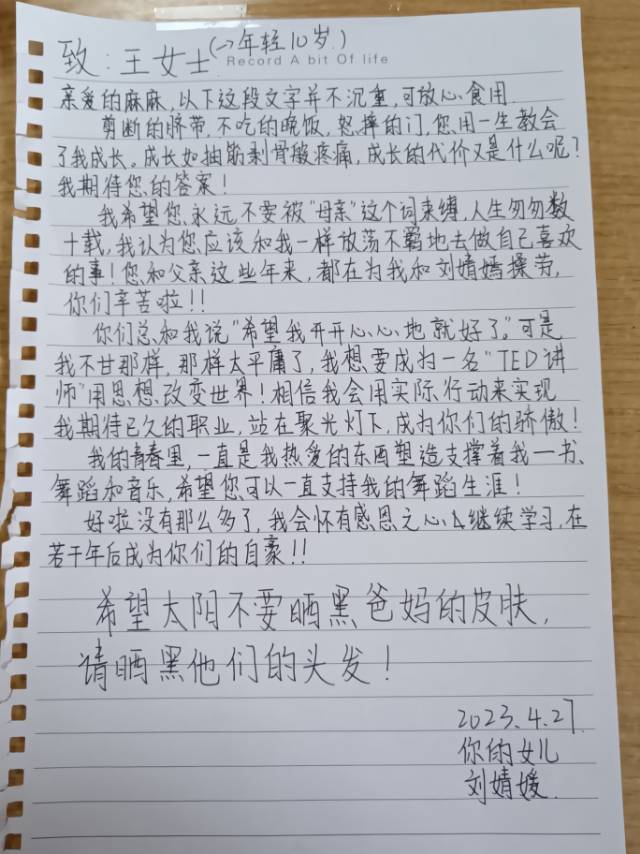 致:王女士(→年轻10岁)
Record A bit Of life
亲爱的麻麻,以下这段文字并不沉重,可放心食用
剪断的脐带,不吃的晚饭,怒摔的门,您用一生教会
了我成长。成长如抽筋剥骨般疼痛,成长的代价又是什么呢?
我期待您的答案!
我希望您永远不要被"母亲"这个词束缚,人生匆匆数
十载,我认为您应该和我一样放荡不羁地去做自己喜欢
的事!您和父亲这些年来,都在为我和刘婧嫣操劳,
你们辛苦啦!!
你们总和我说"希望我开开心心地就好了。"可是
我不甘那样,那样太平庸了,我想要成为一名"TED讲
师"用思想改变世界!相信我会用实际行动来实现
我期待已久的职业,站在聚光灯下,成为你们的骄傲!
我的青春里,一直是我热爱的东西塑造支撑着我—书、
舞蹈和音乐,希望您可以一直支持我的舞蹈生涯!
好啦没有那么多了,我会怀有感恩之心继续学习,在
若干年后成为你们的自豪!!
希望太阳不要晒黑爸妈的皮肤,
请晒黑他们的头发!
2023.4.27.
你的女儿
刘婧媛